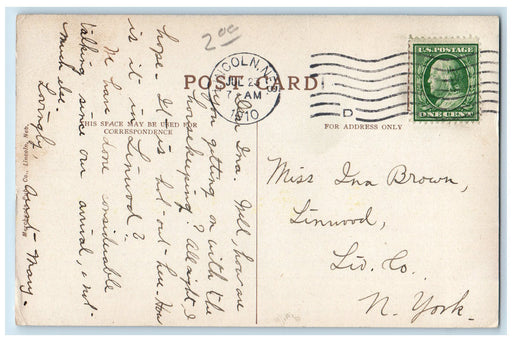 2.00
POST CARD
LINCOLN, NEB.
JUL 2
7 AM
1910
D
U.S. POSTAGE
ONE CENT
THIS SPACE MAY BE USED FOR
CORRESPONDENCE
FOR ADDRESS ONLY
Dear Ina. Well, how are
you getting on with the
housekeeping? All right I
hope. It is hot out here. How
is it in Linwood?
We have done considerable
talking since our arrival, & not
much else.
Lovingly,
Aunt Mary.
Miss Ina Brown,
Linwood,
Liv. Co.
N. York.
Co., Lincoln, Neb.